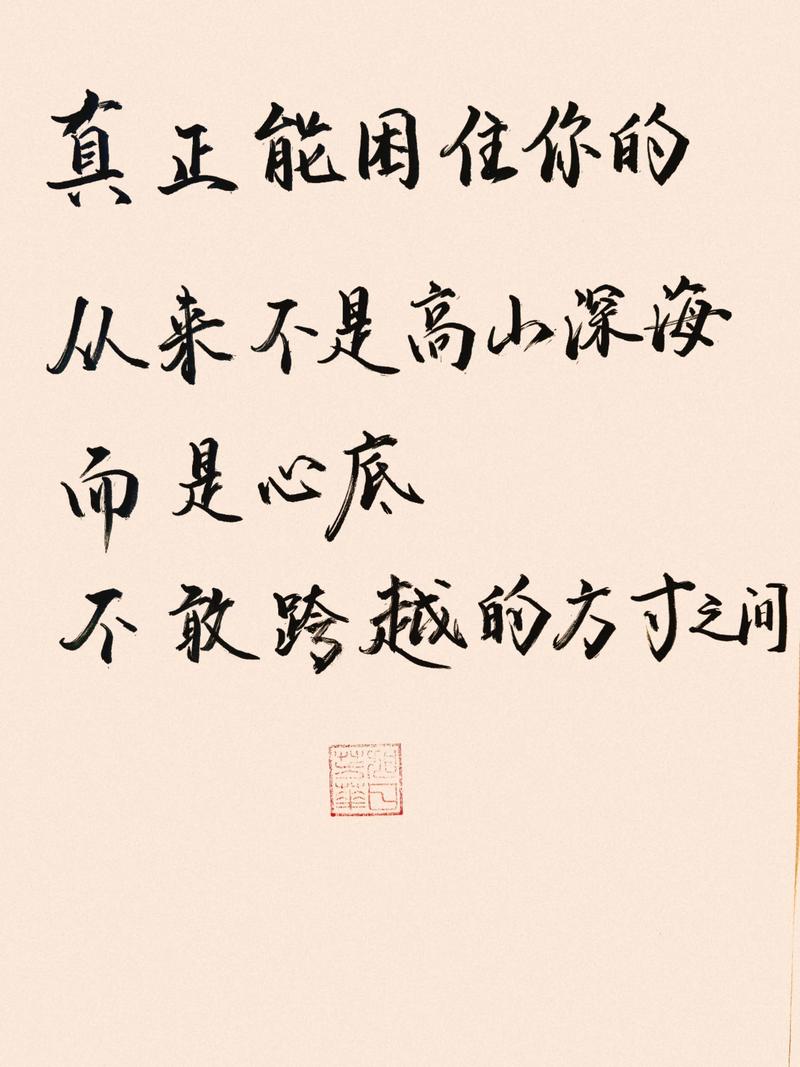 真正能困住你的
从来不是高山深海
而是心底
不敢跨越的方寸之间